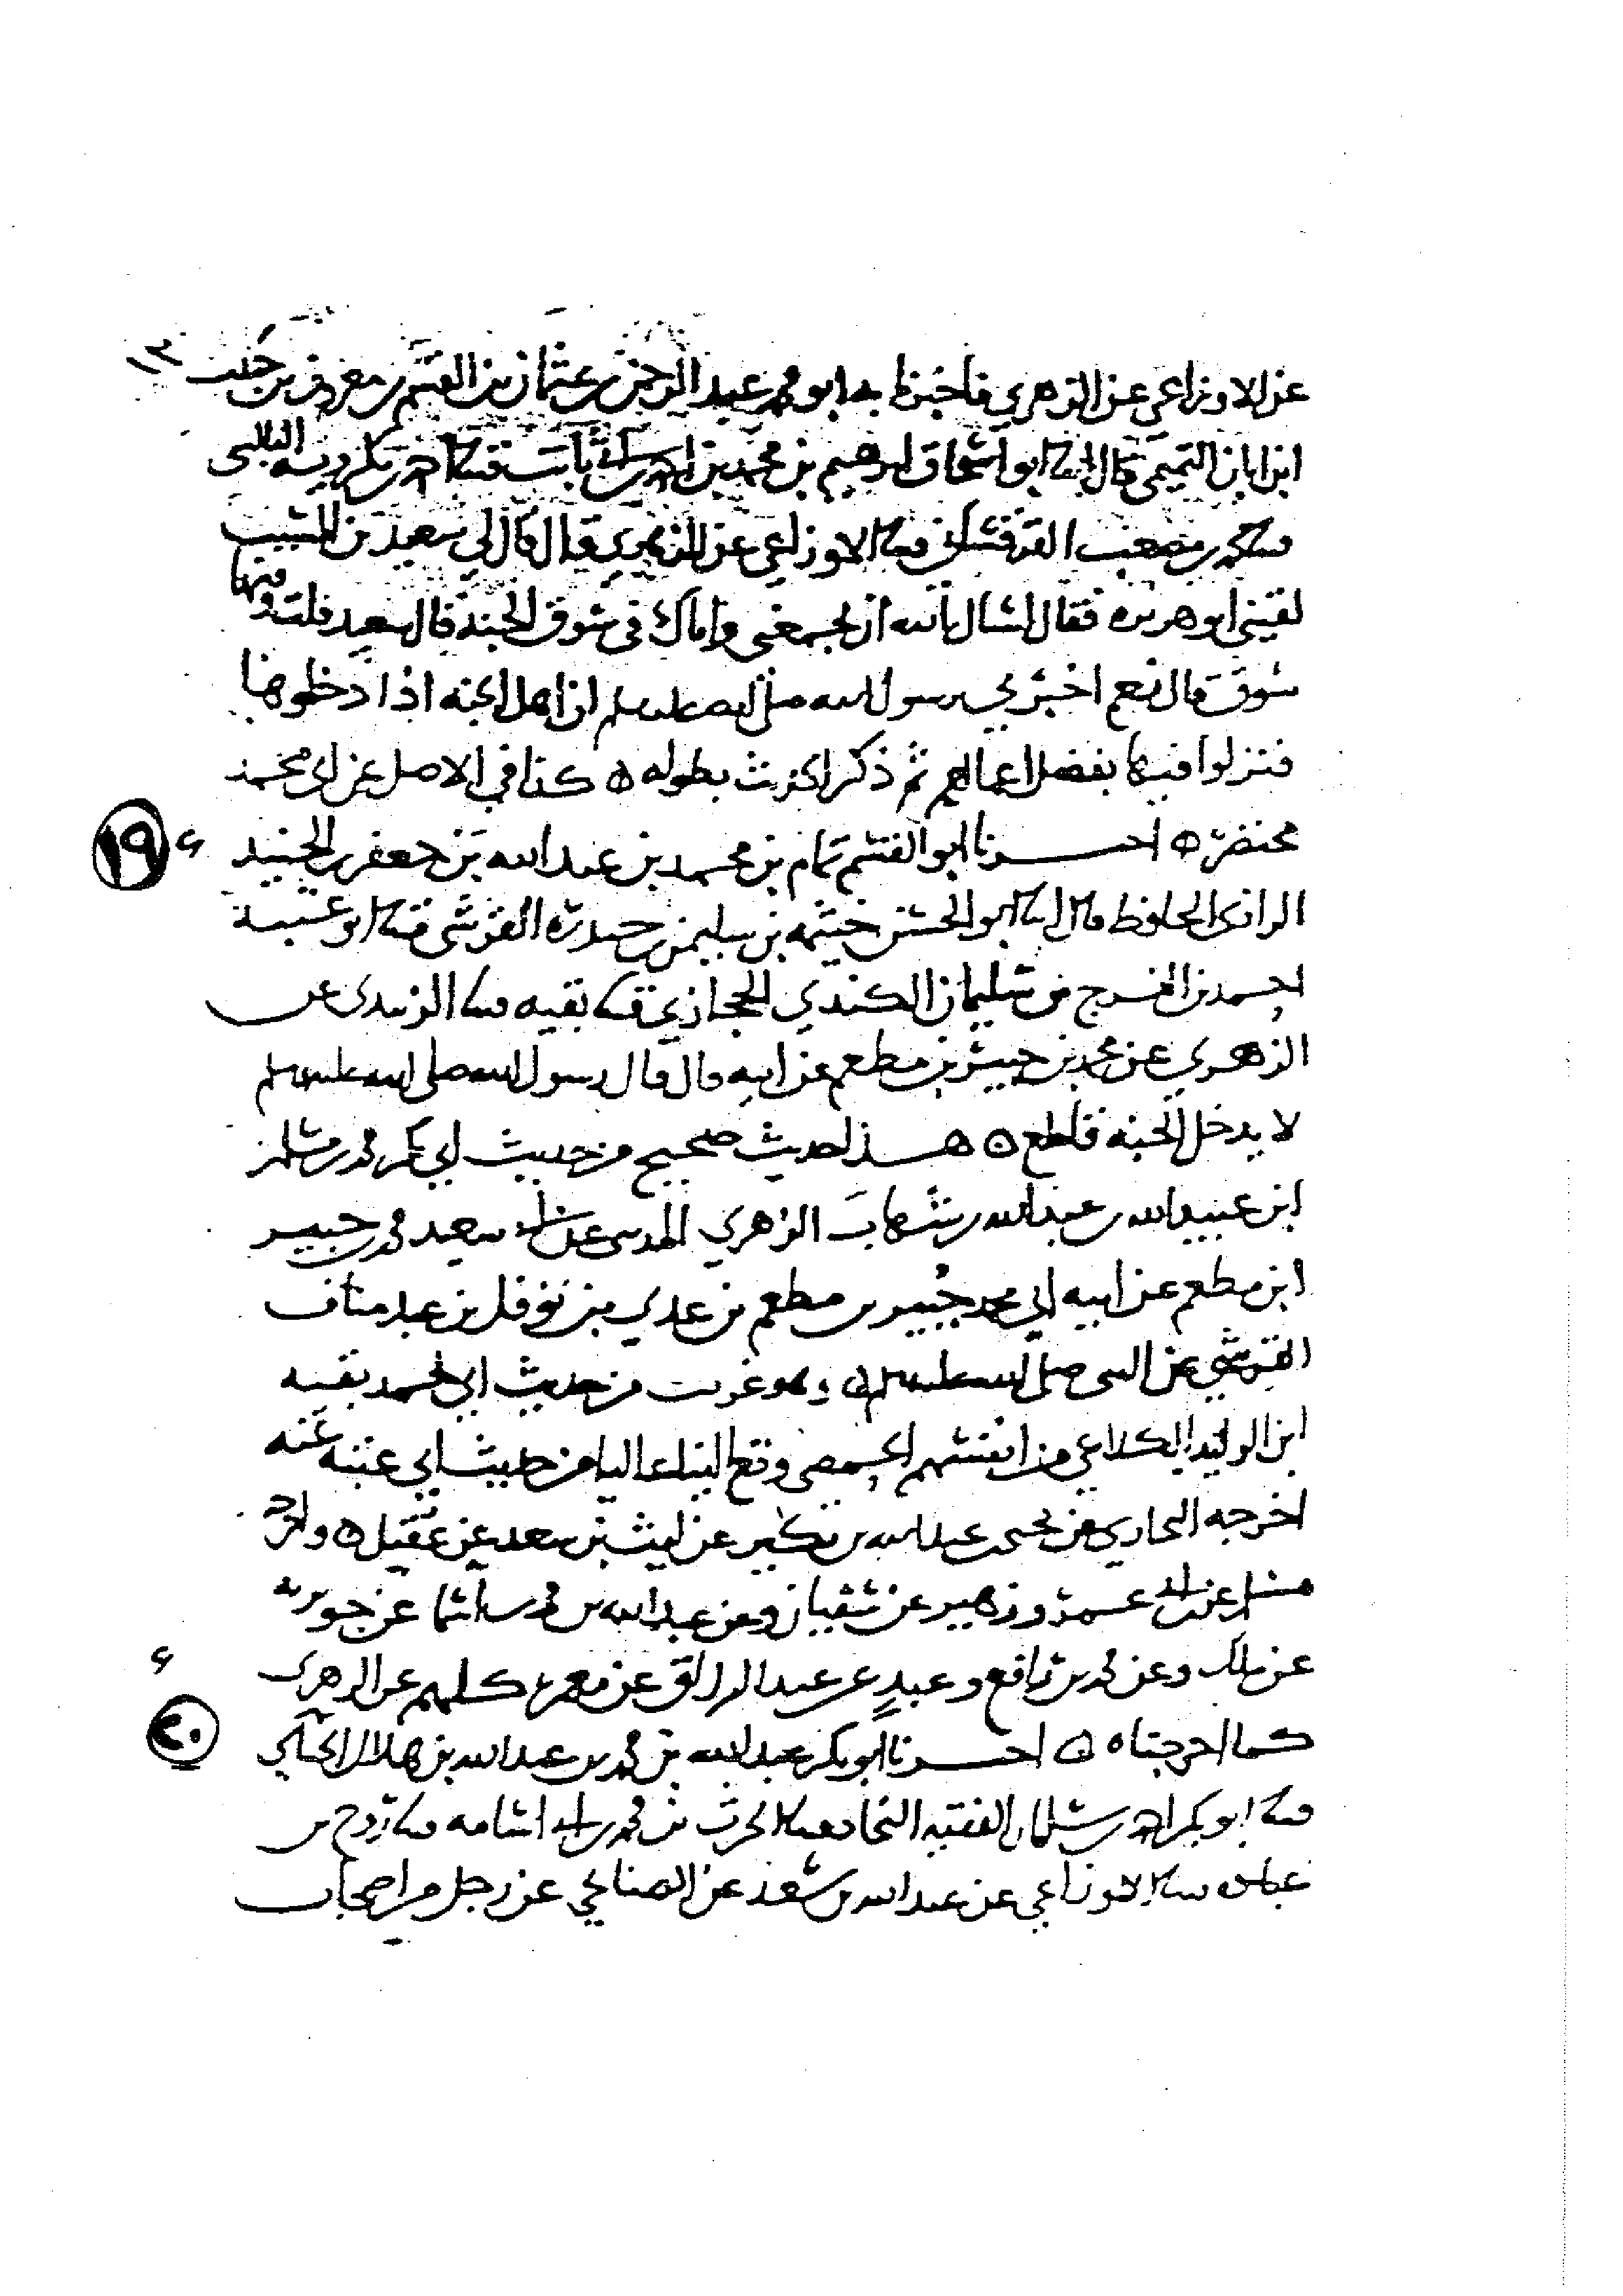 عن الاوزاعي عن الزهري فاخبرنا به ابو محمد عبد الرحمن بن عثمان بن القسم بن معروف بن حبيب
ابن ابان التميمي قال ابنا ابو اسحاق ابرهيم بن محمد بن احمد بن ابي ثابت ثنا احمد بن بكرويه البالسي
ثنا محمد بن مصعب القرقساني ثنا الاوزاعي عن الزهري قال قال لي سعيد بن المسيب
لقيني ابو هريره فقال اسال الله ان يجمعني واياك في سوق الجنة قال سعيد قلت وفيها
سوق قال نعم اخبرني رسول الله صلى الله عليه وسلم ان اهل الجنه اذا دخلوها
فنزلوا فيها بفضل اعمالهم ثم ذكر الحديث بطوله ه كذا في الاصل عن ابي محمد
مختصر ه اخبرنا ابو القسم تمام بن محمد بن عبد الله بن جعفر بن الجنيد
١٩
الرازي الحافظ قال ابنا ابو الحسن خيثمه بن سليمن بن حيدره القرشي ثنا ابو عتبة
احمد بن الفرج بن سليمان الكندي الحجازي ثنا بقيه ثنا الزبيدي عن
الزهري عن محمد بن جبير بن مطعم عن ابيه قال قال رسول الله صلى الله عليه وسلم
لا يدخل الجنه قاطع ه هذا حديث صحيح من حديث ابي بكر محمد بن مسلم
ابن عبيد الله بن عبد الله بن شهاب الزهري المدني عن ابي سعيد محمد بن جبير
ابن مطعم عن ابيه ابي محمد جبير بن مطعم بن عدي بن نوفل بن عبد مناف
القرشي عن النبي صلى الله عليه وسلم ه وهو غريب من حديث ابي يحمد بقيه
ابن الوليد الكلاعي من انفسهم الحمصي وقع الينا عاليا من حديث ابي عتبه عنه
اخرجه البخاري عن يحيى بن عبد الله بن بكير عن ليث بن سعد عن عقيل ه واخرجه
مسلم عن ابن ابي عمر وزهير عن سفيان وعن عبد الله بن محمد بن اسما عن جويريه
عن ملك وعن محمد بن رافع وعبد عن عبد الرزاق عن معمر كلهم عن الزهري
كما اخرجناه ه اخبرنا ابو بكر عبد الله بن محمد بن عبد الله بن هلال الحنائي
٢٠
ثنا ابو بكر احمد بن سلمان الفقيه النجاد ثنا الحرث بن محمد بن ابي اسامه ثنا روح بن
عباده ثنا الاوزاعي عن عبد الله بن سعد عن الصنابحي عن رجل من اصحاب